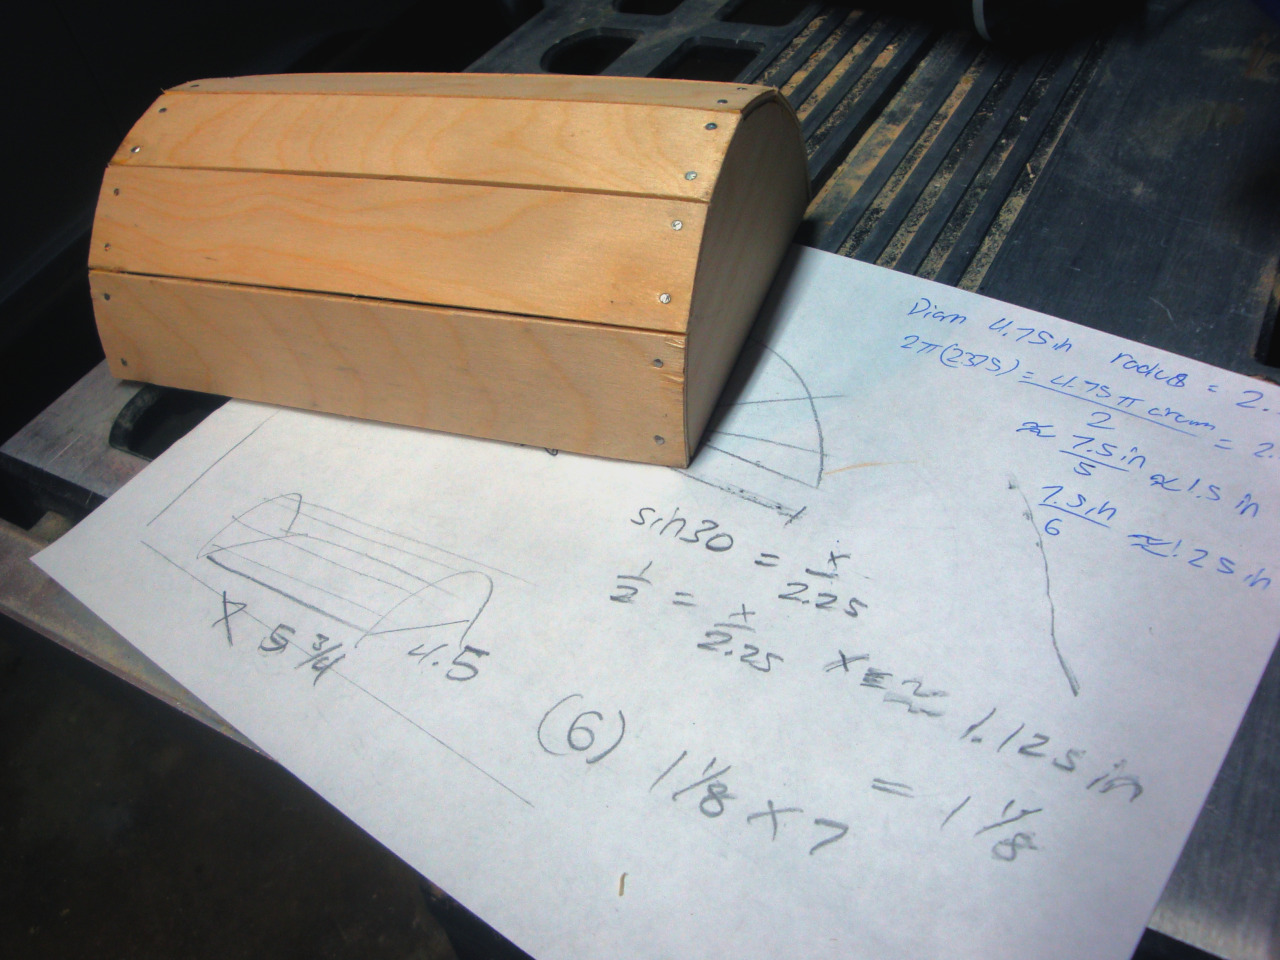 Diam 4.75in radius = 2.
2π(2.375) = 4.75π circum / 2 = 2.
≈ 7.5in / 5 ≈ 1.5 in
7.5in / 6 ≈ 1.25in
sin30 = x / 2.25
1/2 = x / 2.25 x = 1.125 in
= 1 1/8
(6) 1 1/8 x 7
5 3/4
4.5